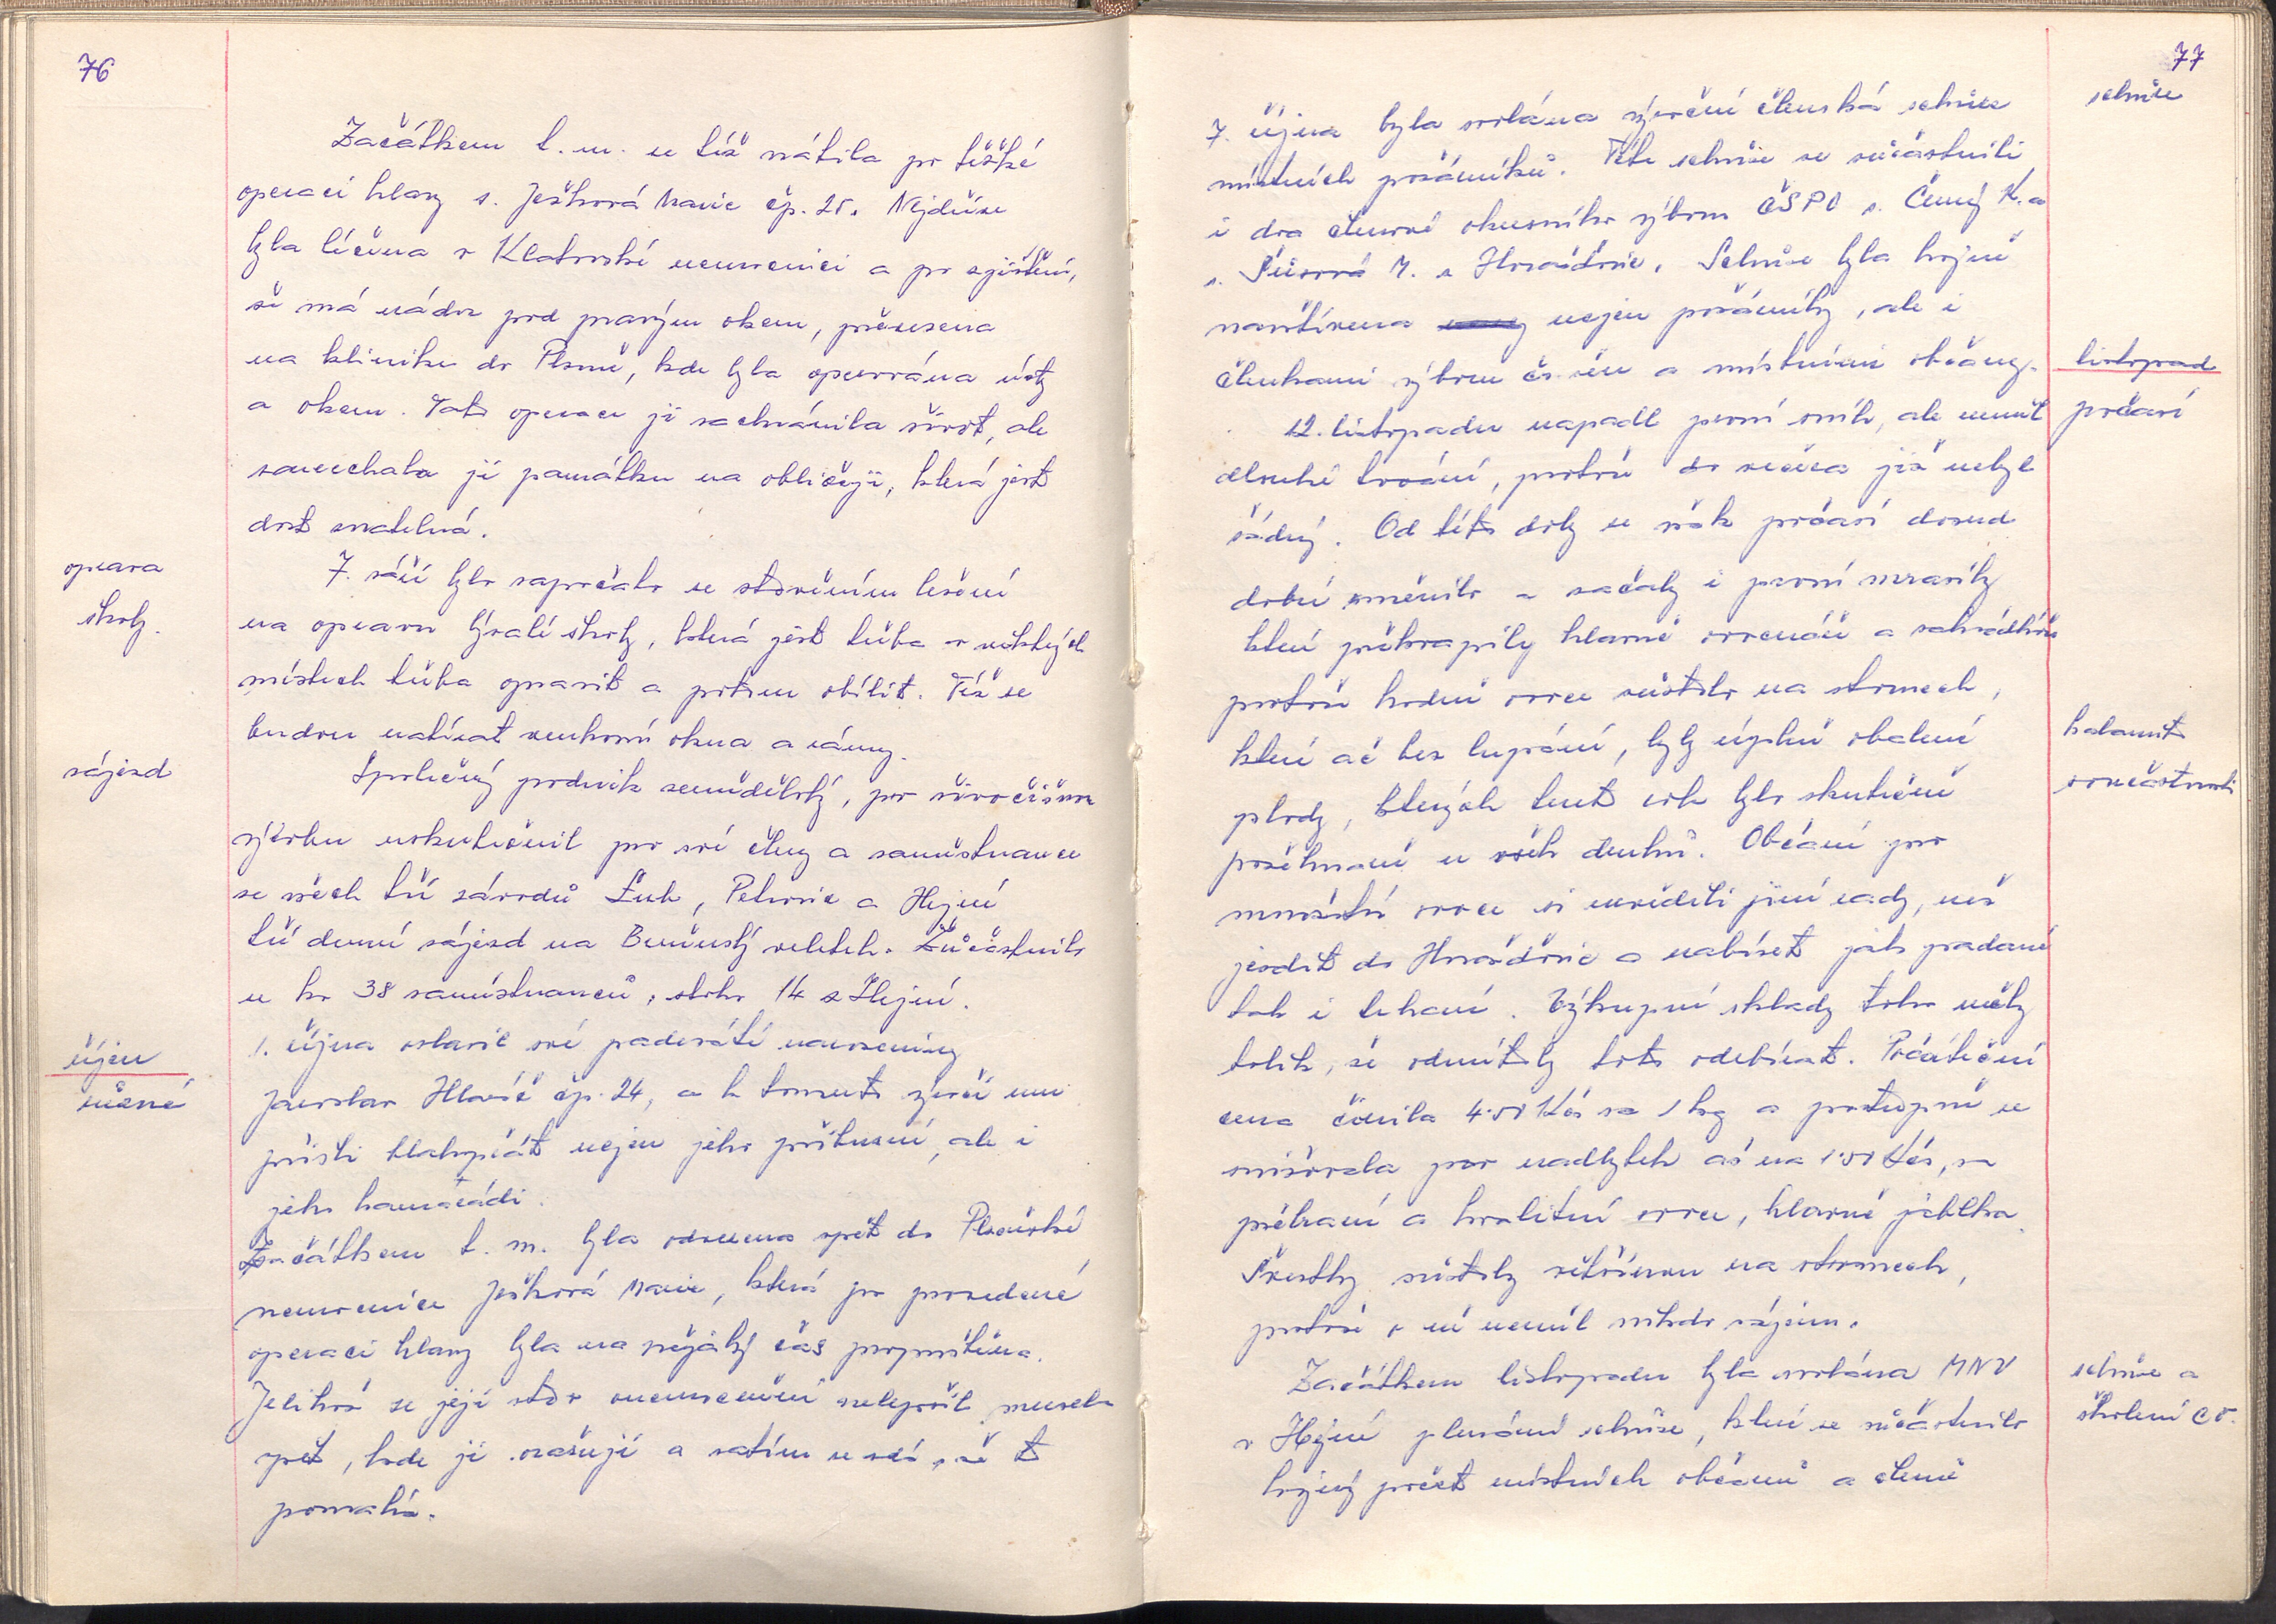 76
Začátkem t. m. se též vrátila po těžké
operaci hlavy s. Ješková Marie čp. 25. Nejdříve
byla léčena v Klatovské nemocnici a po zjištění,
že má nádor pod pravým okem, převezena
na kliniku do Plzně, kde byla operována ústy
a okem. Tato operace jí zachránila život, ale
zanechala jí památku na obličeji, která jest
dost znatelná.
oprava
školy.
7. září bylo započato se stavěním lešení
na opravu bývalé školy, která jest třeba v některých
místech třeba opravit a potom obílit. Též se
budou natírat venkovní okna a rámy.
zájezd
Společný podnik zemědělský, pro živočišnou
výrobu uskutečnil pro své členy a zaměstnance
ze všech tří závodů Žuk, Petrovic a Hejné
tří denní zájezd na Brněnský veletrh. Zúčastnilo
se ho 38 zaměstnanců, z toho 14 z Hejné.
říjen
různé
1. října oslavil své padesáté narozeniny
Jaroslav Hlaváč čp. 24, a k tomuto výročí mu
přišli blahopřát nejen jeho příbuzní, ale i
jeho kamarádi.
Začátkem t. m. byla odvezena zpět do Plzeňské
nemocnice Ješková Marie, která po provedené
operaci hlavy byla na nějaký čas propuštěna.
Jelikož se její stav onemocnění nelepšil musela
zpět, kde ji ozařují a zatím se zdá, že to
pomáhá.
77
schůze
7. října byla svolána výroční členská schůze
místních požárníků. Této schůze se zúčastnili
i dva členové okresního výboru ČSPO s. Černý K. a
s. Šůsová M. z Horažďovic. Schůze byla hojně
navštívena nejen požárníky, ale i
členkami výboru čs. žen a místními občany.
listopad
počasí
12. listopadu napadl první sníh, ale neměl
dlouhé trvání, protože do večera již nebyl
žádný. Od této doby se však počasí dosud
dobré změnilo a začaly i první mrazíky
které překvapily hlavně ovocnáře a zahrádkáře
protože hodně ovoce zůstalo na stromech,
kalamita
ovocnářství
které ač bez kupování, byly úplně obalené
plody, kterých tento rok bylo skutečně
požehnaně u všech druhů. Občané pro
množství ovoce si nevěděli jiné rady, než
jezdit do Horažďovic a nabízet jak padané
tak i trhané. Výkupní sklady toho měly
tolik, že odmítaly toto odebírat. Počáteční
cena činila 4.50 Kčs za 1 kg a postupně se
snižovala pro nadbytek až na 1.50 Kčs, za
přebrané a kvalitní ovoce, hlavně jablka
Švestky zůstaly většinou na stromech,
protože o ně neměl nikdo zájem.
schůze a
školení CO.
Začátkem listopadu byla svolána MNV
v Hejné plenární schůze, které se zúčastnilo
hojný počet místních občanů a členů